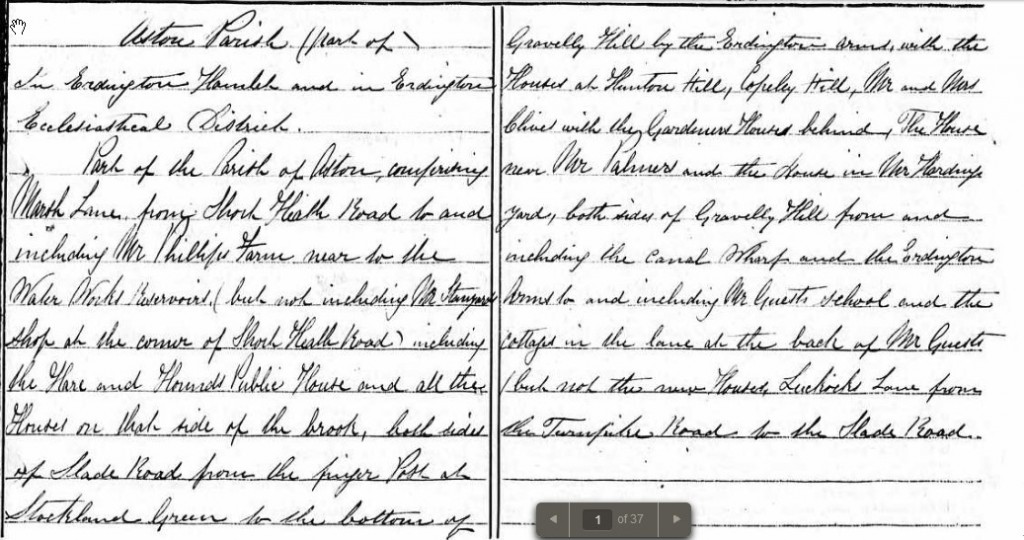 Aston Parish (Part of)
In Erdington Hamlet and in Erdington
Ecclesiastical District.
Part of the Parish of Aston, comprising
Marsh Lane, from Short Heath Road to and
including Mr Phillips Farm near to the
Water Works Reservoirs, (but not including Mr
shop at the corner of Short Heath Road) including
the Hare and Hounds Public House and all the
Houses on that side of the brook, both sides
of Slade Road from the finger Post at
Stockland Green to the bottom of
Gravelly Hill by the Erdington Arms, with the
Houses at Hunton Hill, Copeley Hill, Mr and Mrs
Clives with the Gardeners Houses behind, The House
near Mr Palmers and the House in Mr Hardings
yard, both sides of Gravelly Hill from and
including the Canal Wharf and the Erdington
Arms to and including Mr Guests school and the
cottages in the lane at the back of Mr Guests
(but not the new Houses, Luckocks Lane from
the Turnpike Road to the Slade Road.
1 of 37